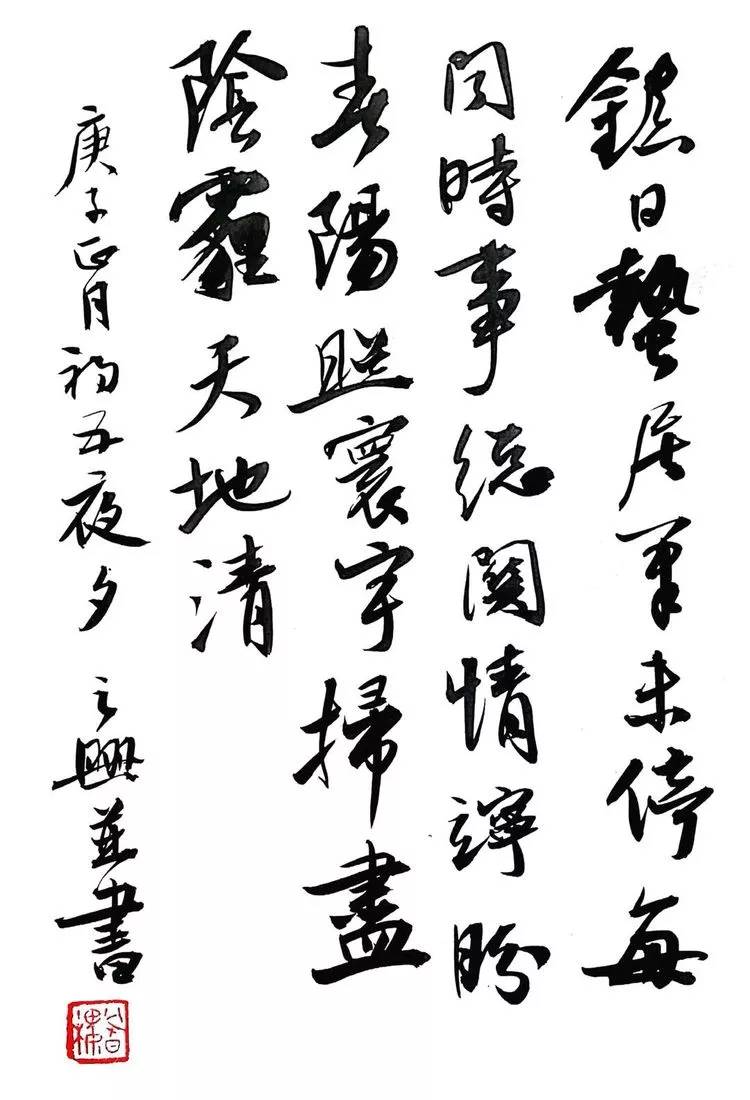 鎮日蟄居筆未停每
聞時事總關情諄盼
春陽照寰宇掃盡
陰霾天地清
庚子正月初五夜夕 之興並書